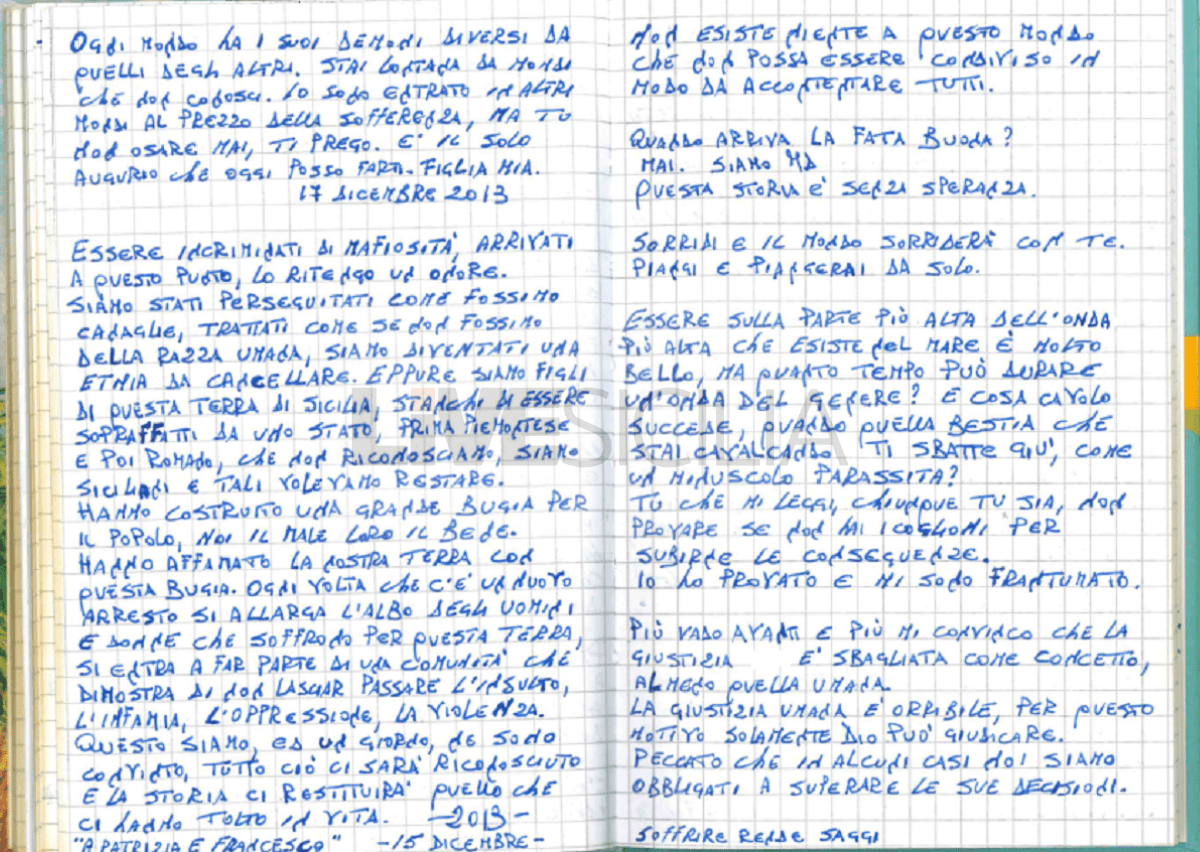 OGNI MONDO HA I SUOI DEMONI DIVERSI DA
QUELLI DEGLI ALTRI. STAI LONTANA DA MONDI
CHE NON CONOSCI. IO SONO ENTRATO IN ALTRI
MONDI AL PREZZO DELLA SOFFERENZA, MA TU
NON OSARE MAI, TI PREGO. E' IL SOLO
AUGURIO CHE OGGI POSSO FARTI. FIGLIA MIA.
17 DICEMBRE 2013
ESSERE INCRIMINATI DI MAFIOSITÀ, ARRIVATI
A QUESTO PUNTO, LO RITENGO UN ONORE.
SIAMO STATI PERSEGUITATI COME FOSSIMO
CANAGLIE, TRATTATI COME SE NON FOSSIMO
DELLA RAZZA UMANA, SIAMO DIVENTATI UNA
ETNIA DA CANCELLARE. EPPURE SIAMO FIGLI
DI QUESTA TERRA DI SICILIA, STANCHI DI ESSERE
SOPRAFFATTI DA UNO STATO, PRIMA PIEMONTESE
E POI ROMANO, CHE NON RICONOSCIAMO, SIAMO
SICILIANI E TALI VOLEVAMO RESTARE.
HANNO COSTRUITO UNA GRANDE BUGIA PER
IL POPOLO, NOI IL MALE LORO IL BENE.
HANNO AFFAMATO LA NOSTRA TERRA CON
QUESTA BUGIA. OGNI VOLTA CHE C'E' UN NUOVO
ARRESTO SI ALLARGA L'ALBO DEGLI UOMINI
E DONNE CHE SOFFRONO PER QUESTA TERRA,
SI ENTRA A FAR PARTE DI UNA COMUNITA' CHE
DIMOSTRA DI NON LASCIAR PASSARE L'INSULTO,
L'INFAMIA, L'OPPRESSIONE, LA VIOLENZA.
QUESTO SIAMO, ED UN GIORNO, NE SONO
CONVINTO, TUTTO CIÒ CI SARÀ RICONOSCIUTO
E LA STORIA CI RESTITUIRA' QUELLO CHE
CI HANNO TOLTO IN VITA. -2013-
"A PATRIZIA E FRANCESCO" -15 DICEMBRE-
NON ESISTE NIENTE A QUESTO MONDO
CHE NON POSSA ESSERE CONDIVISO IN
MODO DA ACCONTENTARE TUTTI.
QUANDO ARRIVA LA FATA BUONA?
MAI. SIAMO
QUESTA STORIA E' SENZA SPERANZA.
SORRIDI E IL MONDO SORRIDERÀ CON TE.
PIANGI E PIANGERAI DA SOLO.
ESSERE SULLA PARTE PIÙ ALTA DELL'ONDA
PIÙ ALTA CHE ESISTE NEL MARE È MOLTO
BELLO, MA QUANTO TEMPO PUÒ DURARE
UN'ONDA DEL GENERE? E COSA CAVOLO
SUCCEDE, QUANDO QUELLA BESTIA CHE
STAI CAVALCANDO TI SBATTE GIU', COME
UN MINUSCOLO PARASSITA?
TU CHE MI LEGGI, CHIUNQUE TU SIA, NON
PROVARE SE NON HAI I COGLIONI PER
SUBIRNE LE CONSEGUENZE.
IO HO PROVATO E MI SONO FRANTUMATO.
PIÙ VADO AVANTI E PIÙ MI CONVINCO CHE LA
GIUSTIZIA E' SBAGLIATA COME CONCETTO,
ALMENO QUELLA UMANA.
LA GIUSTIZIA UMANA E' ORRIBILE, PER QUESTO
MOTIVO SOLAMENTE DIO PUO' GIUDICARE.
PECCATO CHE IN ALCUNI CASI NOI SIAMO
OBBLIGATI A SUPERARE LE SUE DECISIONI.
SOFFRIRE RENDE SAGGI
LIVESICILIA